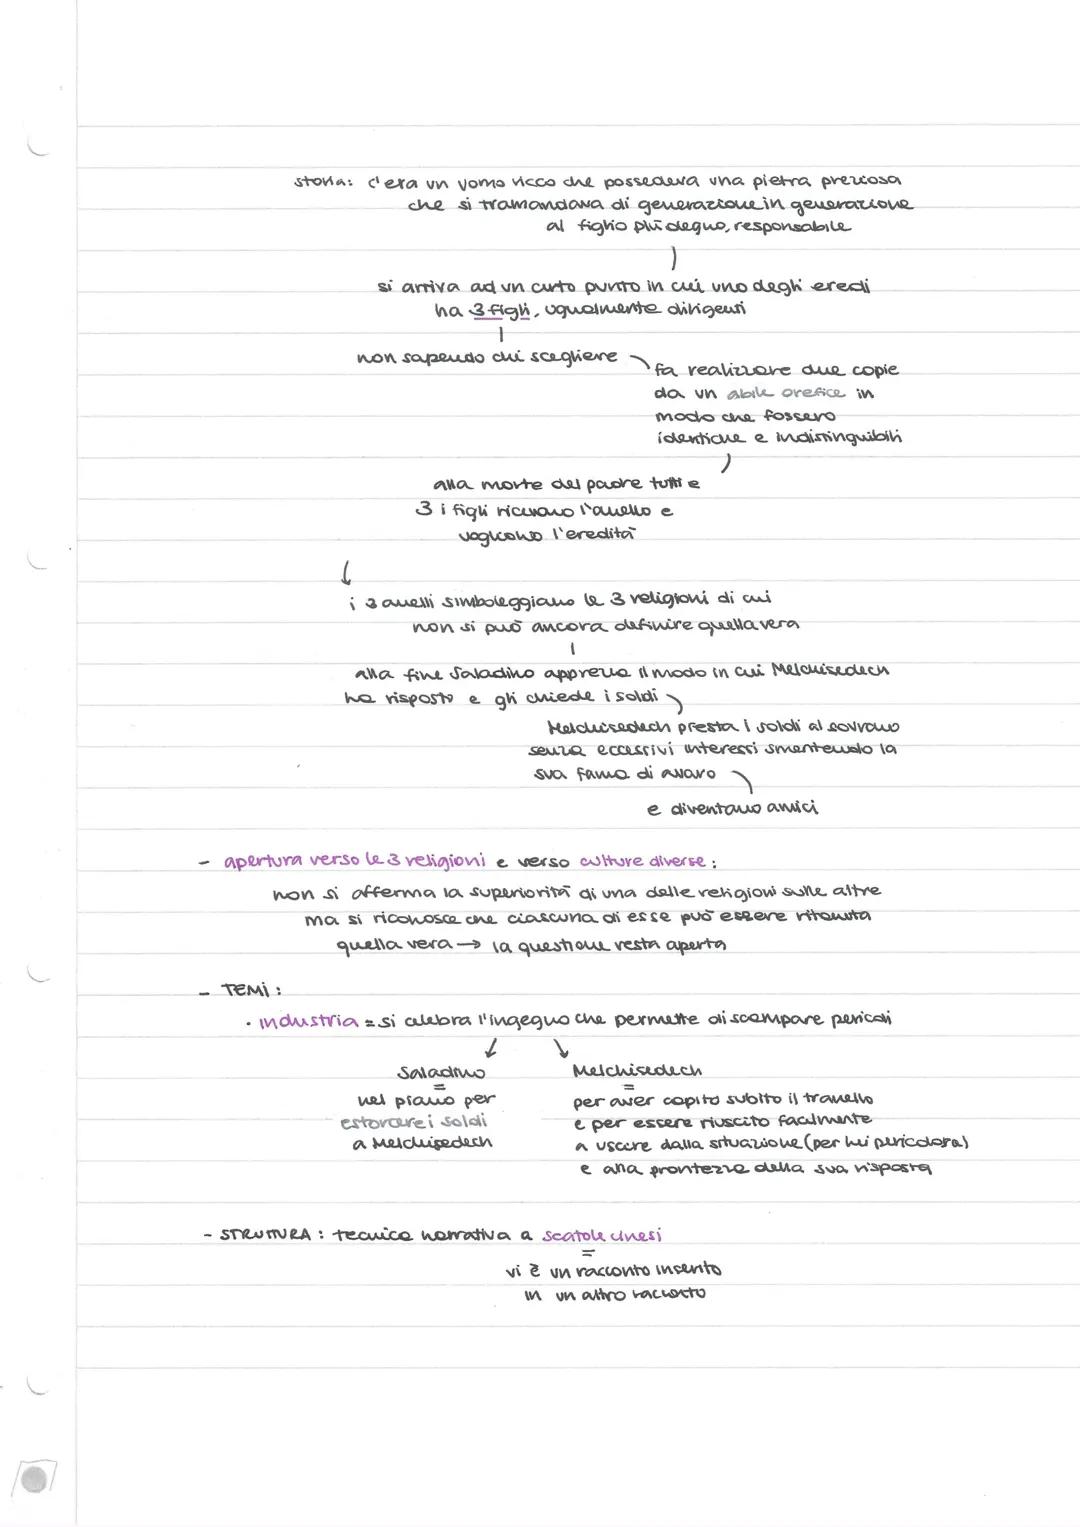 storia: c'era un uomo ricco che possedeva una pietra preziosa
che si tramandava di generazione in generazione
al figlio più degno, responsabile
si arriva ad un certo punto in cui uno degli eredi
ha 3 figli, ugualmente diligenti
non sapendo chi scegliere
fa realizzare due copie
da un abile orefice in
modo che fossero
identiche e indistinguibili
alla morte del padre tutti e
3 i figli ricevano l'anello e
vogliono l'eredità
i 3 anelli simboleggiano le 3 religioni di cui
non si può ancora definire quella vera
alla fine Saladino apprezza il modo in cui Melchisedech
ha risposto e gli chiede i soldi
Melchisedech presta i soldi al sovrano
senza eccessivi interessi smentendo la
sua fama di avaro
e diventano amici
- apertura verso le 3 religioni e verso culture diverse:
non si afferma la superiorità di una delle religioni sulle altre
ma si riconosce che ciascuna di esse può essere ritenuta
quella vera → la questione resta aperta
- TEMI:
• industria = si celebra l'ingegno che permette di scampare pericoli
Saladino
=
nel piano per
estorcere i soldi
a Melchisedech
Melchisedech
=
per aver capito subito il tranello
e per essere riuscito facilmente
a uscire dalla situazione (per lui pericolosa)
e alla prontezza della sua risposta
- STRUTTURA: tecnica narrativa a scatole cinesi
=
vi è un racconto inserito
in un altro racconto